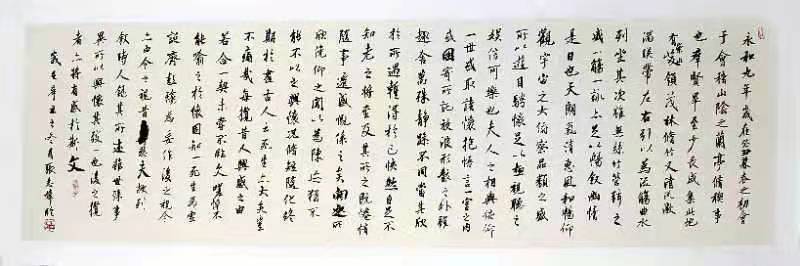 永和九年歲在癸丑暮春之初會
于會稽山陰之蘭亭脩稧事
也羣賢畢至少長咸集此地
有崇山峻領茂林脩竹又有清流激
湍暎帶左右引以為流觴曲水
列坐其次雖無絲竹管弦之
盛一觴一詠亦足以暢敘幽情
是日也天朗氣清惠風和暢仰
觀宇宙之大俯察品類之盛
所以遊目騁懷足以極視聽之
娛信可樂也夫人之相與俯仰
一世或取諸懷抱悟言一室之內
或因寄所託放浪形骸之外雖
趣舍萬殊靜躁不同當其欣
於所遇蹔得於己快然自足不
知老之將至及其所之既惓情
隨事遷感慨係之矣向之所
欣俛仰之間以為陳迹猶不
能不以之興懷況脩短隨化終
期於盡古人云死生亦大矣豈
不痛哉每攬昔人興感之由
若合一契未嘗不臨文嗟悼不
能喻之於懷固知一死生為虛
誕齊彭殤為妄作後之視今
亦由今之視昔悲夫故列
敘時人錄其所述雖世殊事
異所以興懷其致一也後之攬
者亦將有感於斯文
辛丑之冬月